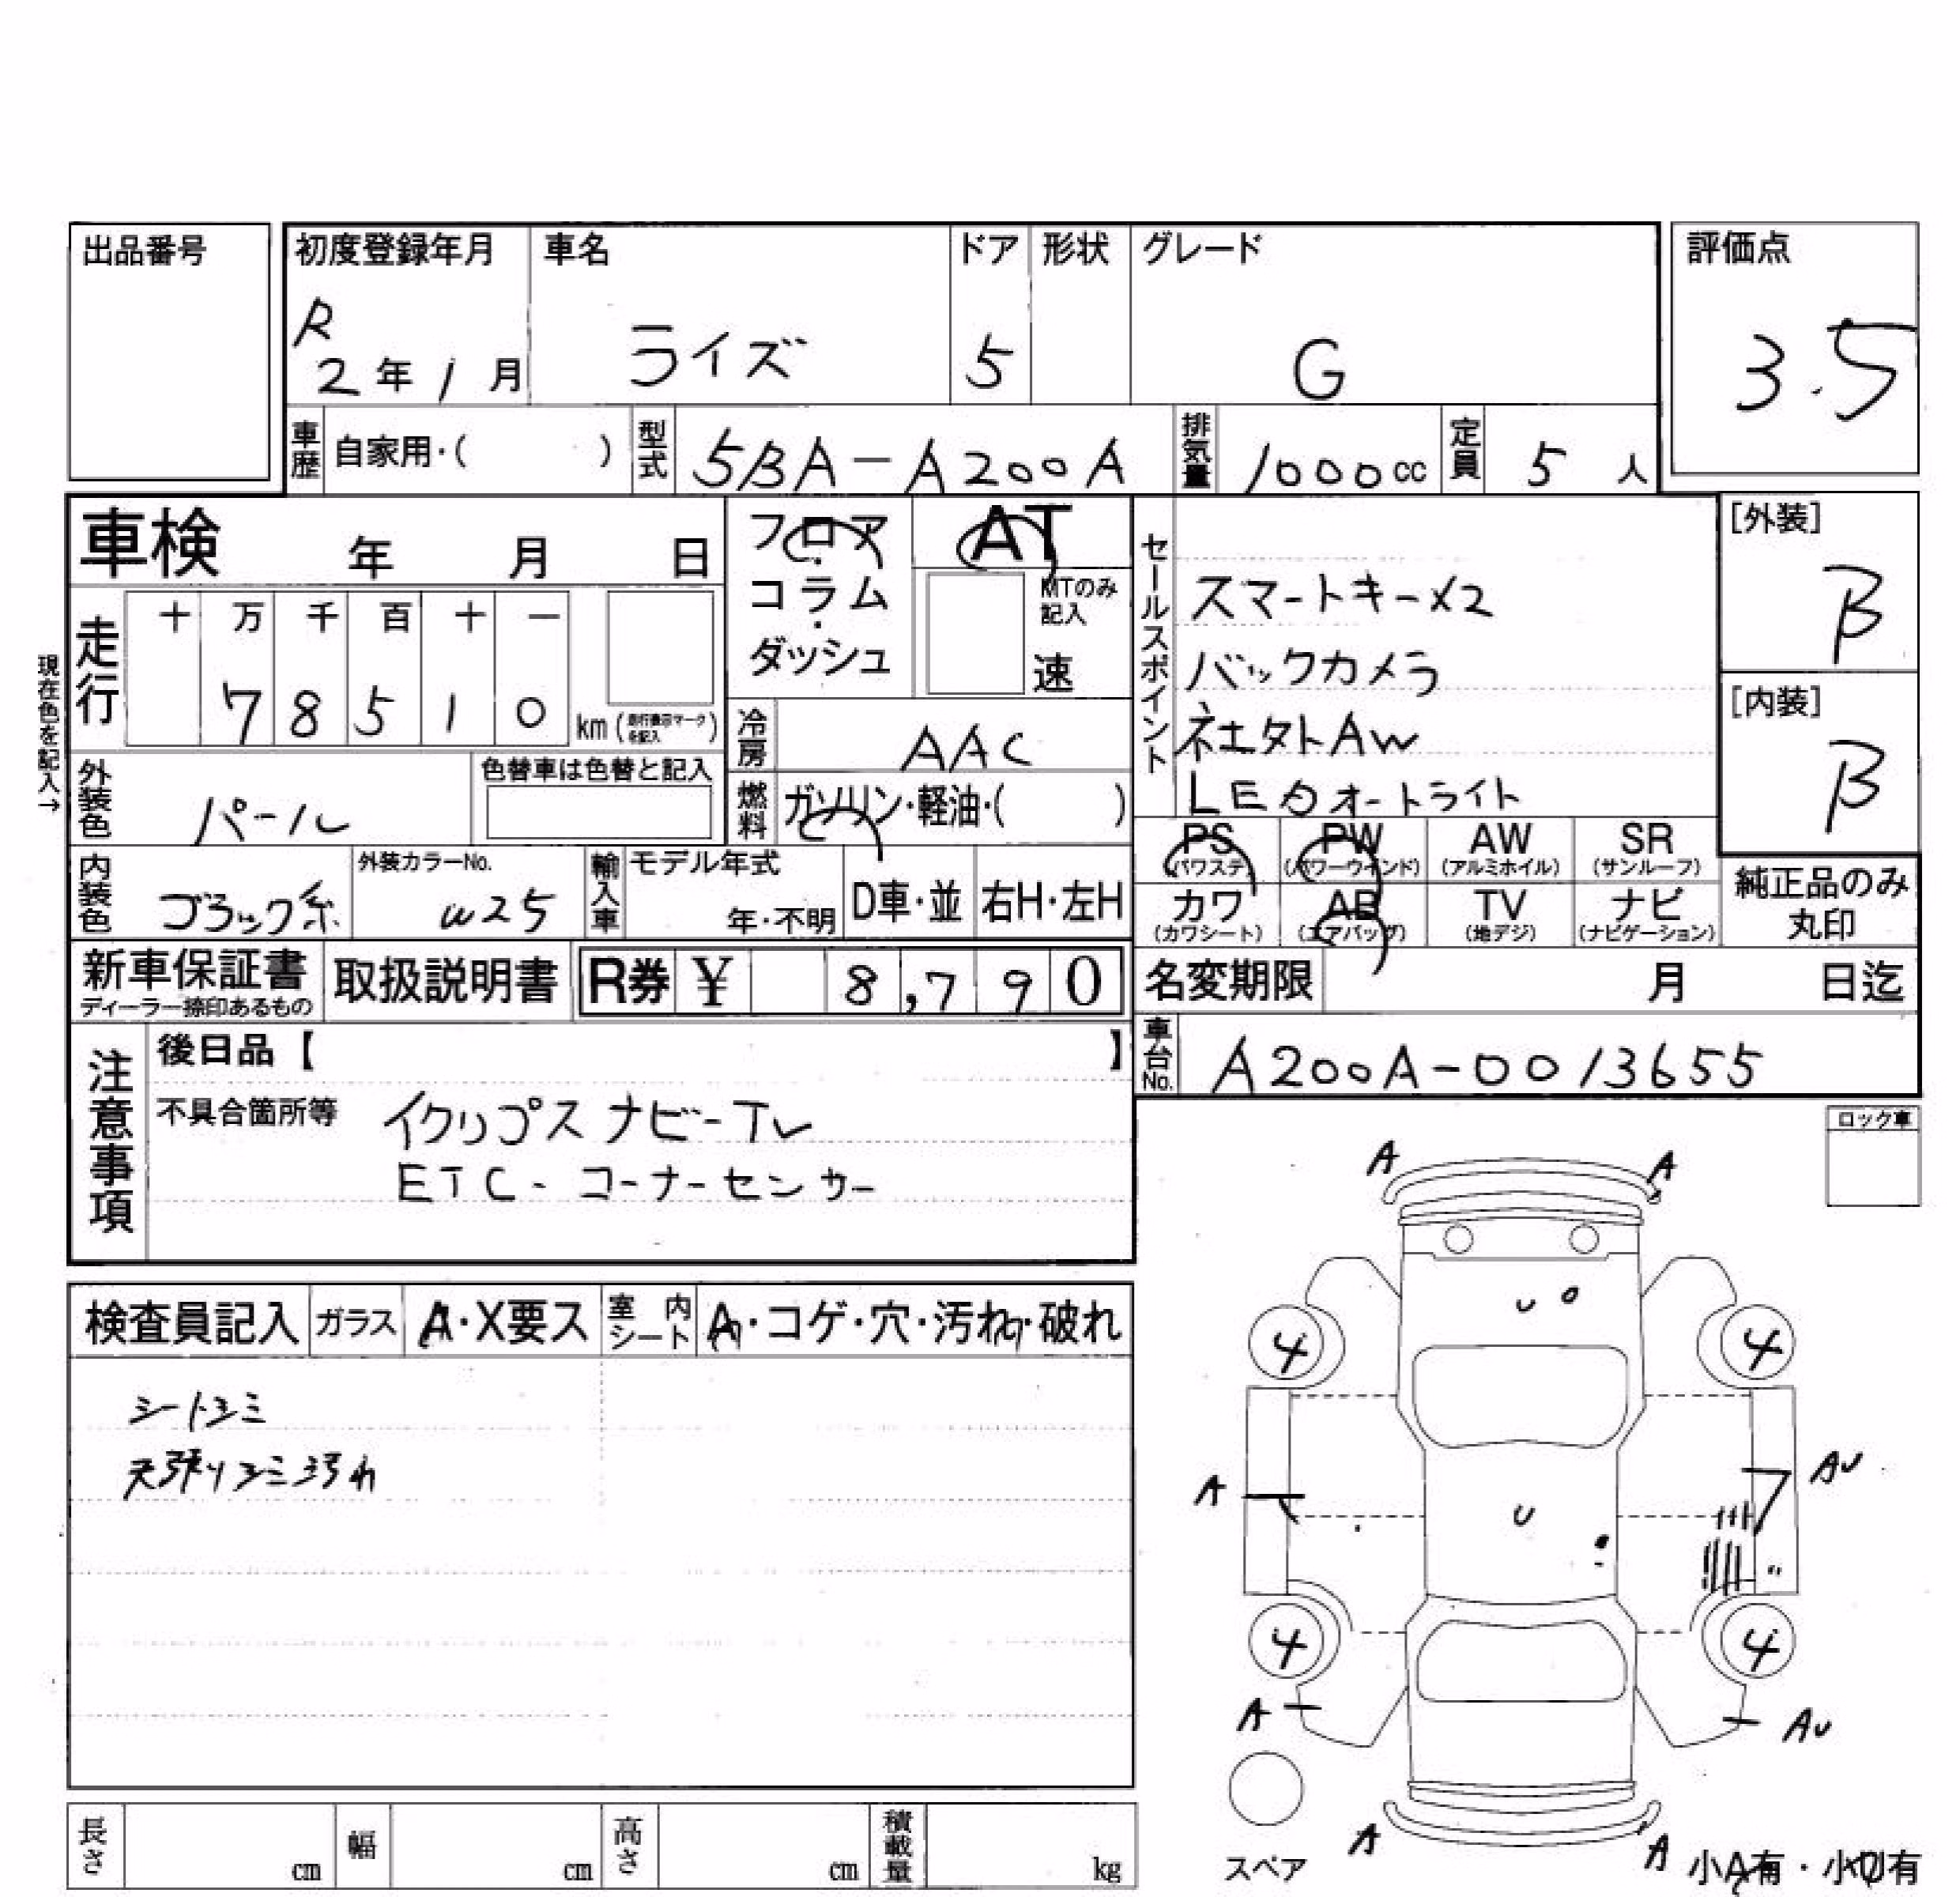 出品番号
初度登録年月 車名 ドア 形状 グレード 評価点
R
2年1月 ライズ 5 G 3.5
車歴 自家用・( ) 型式 5BA-A200A 排気量 1000cc 定員 5人
車検 年 月 日
フロア・コラム・ダッシュ
AT
MTのみ記入
速
現在色を記入→
走行 十 万 千 百 十 一
7 8 5 1 0 km (走行表示マークを記入)
冷房 AAC
燃料 ガソリン・軽油・( )
外装色 パール
色替車は色替と記入
内装色 ブラック系
外装カラーNo.
W25
輸入車 モデル年式
年・不明 D車・並 右H・左H
セールスポイント
スマートキーX2
バックカメラ
社外AW
LEDオートライト
[外装]
B
[内装]
B
PS PW AW SR
(パワステ) (パワーウインド) (アルミホイル) (サンルーフ)
カワ AB TV ナビ
(カワシート) (エアバッグ) (地デジ) (ナビゲーション)
純正品のみ
丸印
新車保証書
ディーラー捺印あるもの
取扱説明書 R券 ¥ 8,790
名変期限 月 日迄
車台No. A200A-0013655
注意事項
後日品【 】
不具合箇所等 イクリプスナビ-TV
ETC-コーナーセンサー
ロック車
検査員記入 ガラス A・X要ス 室内シート A・コゲ・穴・汚れ・破れ
シートシミ
天張りシミ汚れ
A A
U
4 4
A AU
U
4 4
A AU
A A
スペア
小A有・小U有
長さ cm 幅 cm 高さ cm 積載量 kg